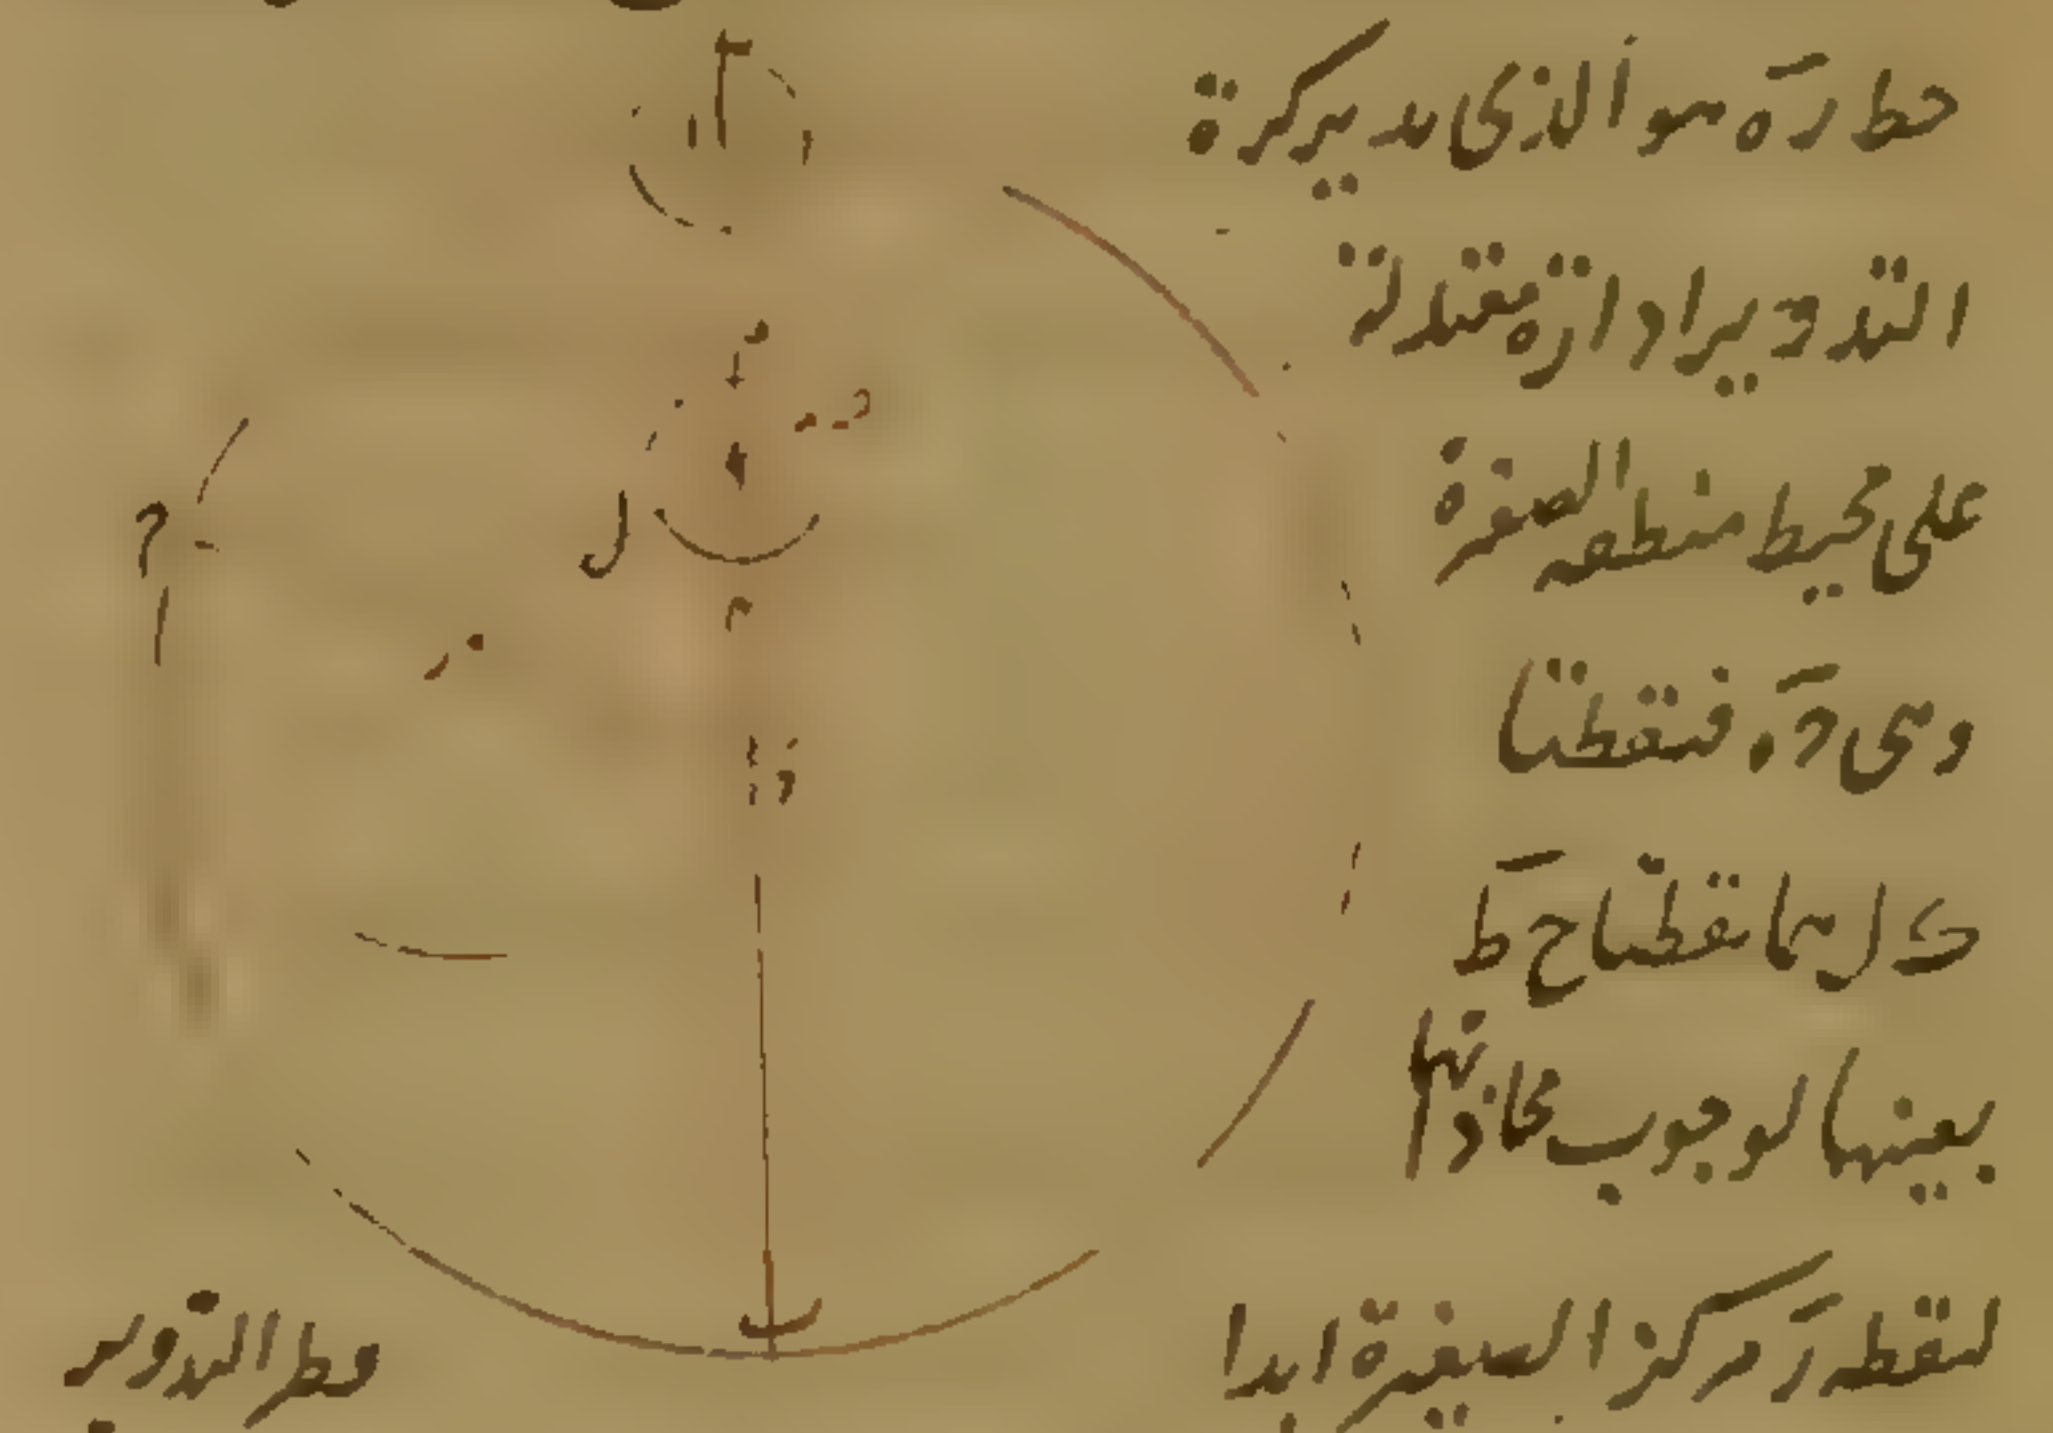 خط ره هو الذي يدير كرة
التدوير ادارة معتدلة
على محيط منطقه الصغرة
وهي ده فنقطتا
ك ل هما نقطتا ح ط
بعينهما لوجوب محاذاتها
لنقطه ر مركز الصغيرة ابدا
قطر التدوير
ح
ل
م
ب